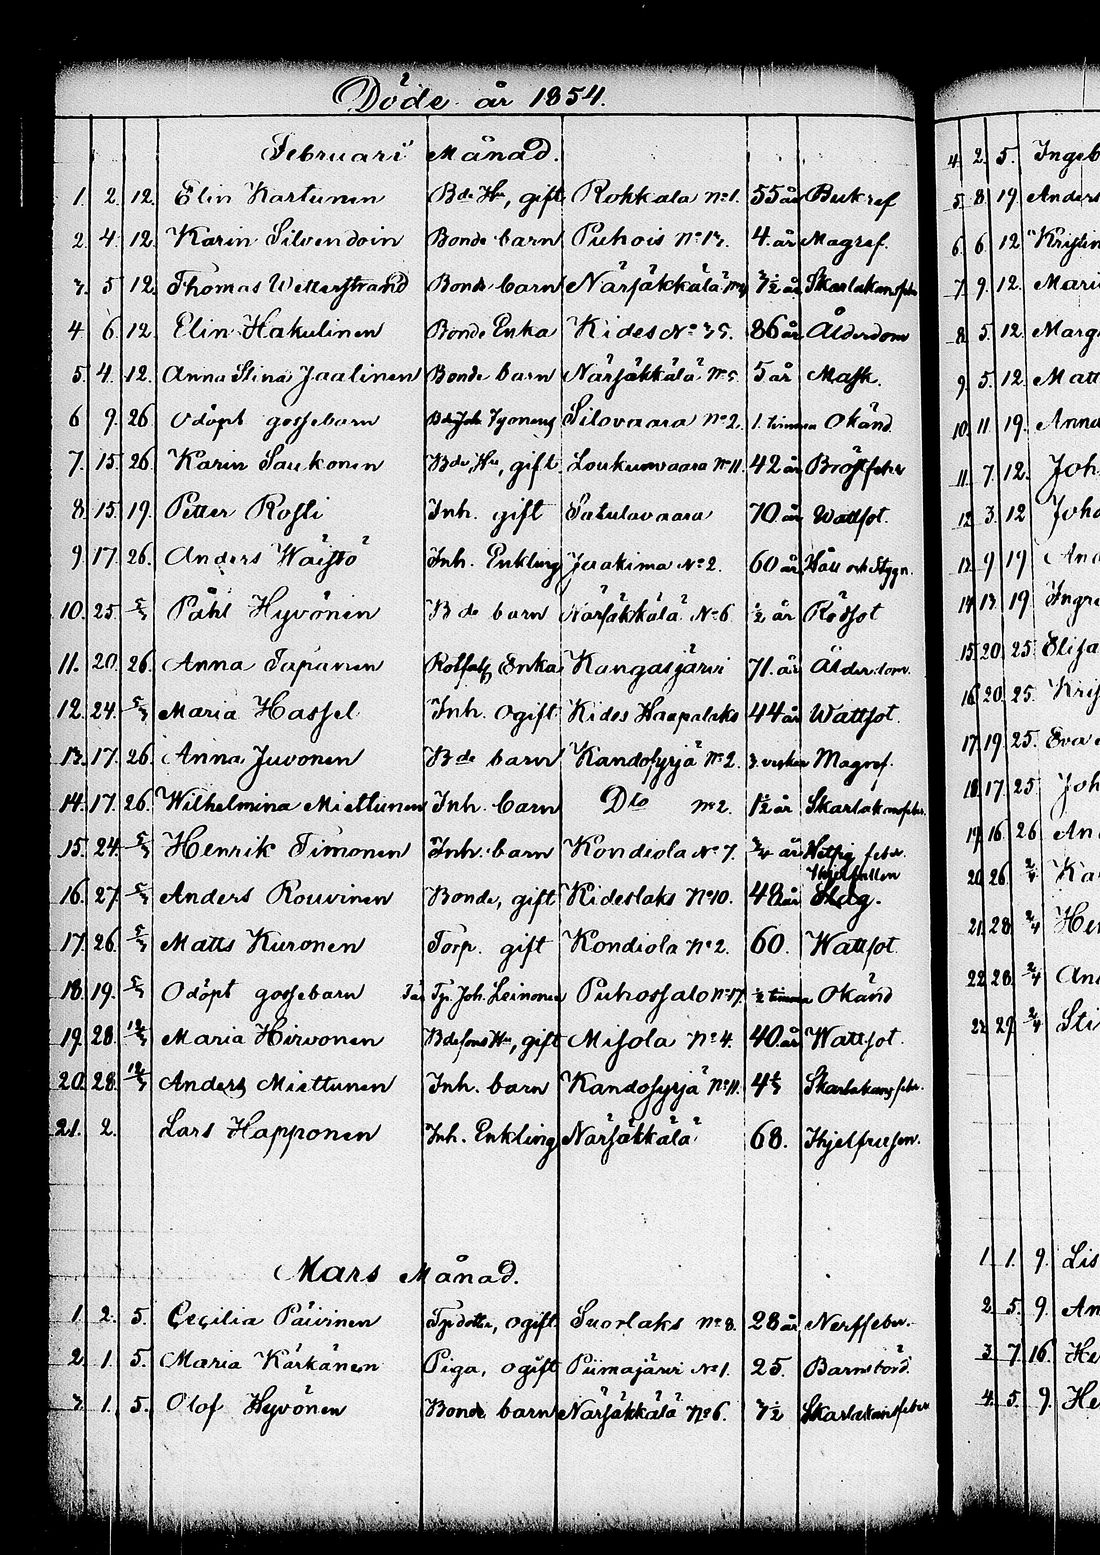 Döde år 1854.
Februari Månad.
1. 2. 12. Elin Kartunen Bde Hu, gift Rokkala No 1. 55 år Buk ref
2. 4. 12. Karin Silvendoin Bonde barn Puhois No 13. 4. år Magref.
3. 5 12. Thomas Wetterstrand Bonde barn Närsäkkälä 3 1/2 år Skarlakansfeber
4 6. 12. Elin Hakulinen Bonde Enka Kides No 35. 86 år Ålderdom
5. 4. 12. Anna Stina Jaalinen Bonde barn Närsäkkälä No 5. 5 år Mask.
6 9. 26 Odöpt gossebarn Silovaara No 2. 1. timma Okänd.
7. 15 26. Karin Saukonen Bde Hu, gift. Loukunvaara No 11. 42 år Bröstfeber
8. 15. 19. Petter Rossi Inh. gift Satulavaara 70 år Wattsot.
9. 17. 26. Anders Wäistö Inh. Enkling Jaakima No 2. 60 år Håll och Stygn.
10. 25. 5/3 Påhl Hyvönen Bde barn Närsäkkälä No 6 1/2 år Rödsot
11. 20. 26. Anna Tapanen Enka Kangasjärvi 71. år Ålderdom.
12. 24. 5/3 Maria Hassel Inh. ogift Kides Haapalaks 44 år Wattsot.
13. 17. 26. Anna Juvonen Bde barn Kandosyrjä No 2. 3. veckor Magref.
14. 17. 26. Wilhelmina Miettunen Inh. barn Dto No 2. 1 1/2 år Skarlakansfeber.
15. 24. 5/3 Henrik Timonen Inh. barn Kondiola No 7. 3/4 år Hetsig feber.
16. 27. 5/3 Anders Rouvinen Bonde, gift Kideslaks No 10. 48 år Slag.
17. 26. 5/3 Matts Kuronen Torp. gift Kondiola No 2. 60. Wattsot
18. 19. 5/3 Odöpt gossebarn Tp. Joh. Leinonen Puhossalo No 17. 1/2 timma Okänd
19. 28. 12/3 Maria Hirvonen Bdesons Hu, gift Misola No 4. 40. år Wattsot.
20. 28. 12/3 Anders Miettunen Inh. barn Kandosyrjä No 11. Skarlakansfeber.
21. 2. Lars Happonen Inh. Enkling Närsäkkälä 68. Ihjelfrusen.
Mars Månad.
1. 2. 5. Cecilia Päivinen Tp dotter, ogift Suorlaks No 8. 28 år Nerffeber.
2. 1. 5. Maria Kärkänen Piga, ogift Piimajärvi No 1. 25. Barnsbörd.
3. 1. 5. Olof Hyvönen Bonde barn Närsäkkälä No 6. 3 1/2 Skarlakansfeber
4. 2. 5. Ingeb
5. 8 19 Anders
6. 6 12 Kristin
7. 9. 12. Mari
8. 5. 12. Marg
9. 5. 12. Matt
10. 11 19. Anna
11. 7. 12. Joh
12. 3. 12 Joha
13. 9 19 An
14 13 19 Ingr
15 20. 25. Elisa
16 20. 25. Kris
17. 19. 25. Eva
18. 17. 25. Joh
19. 16. 26 An
20. 26. 2/4 Ka
21. 28. 2/4 He
22. 28. 2/4 An
23 29. 2/4 Sti
1. 1. 9. Lis
2. 5. 9. An
3. 7. 16. He
4. 5. 9. He